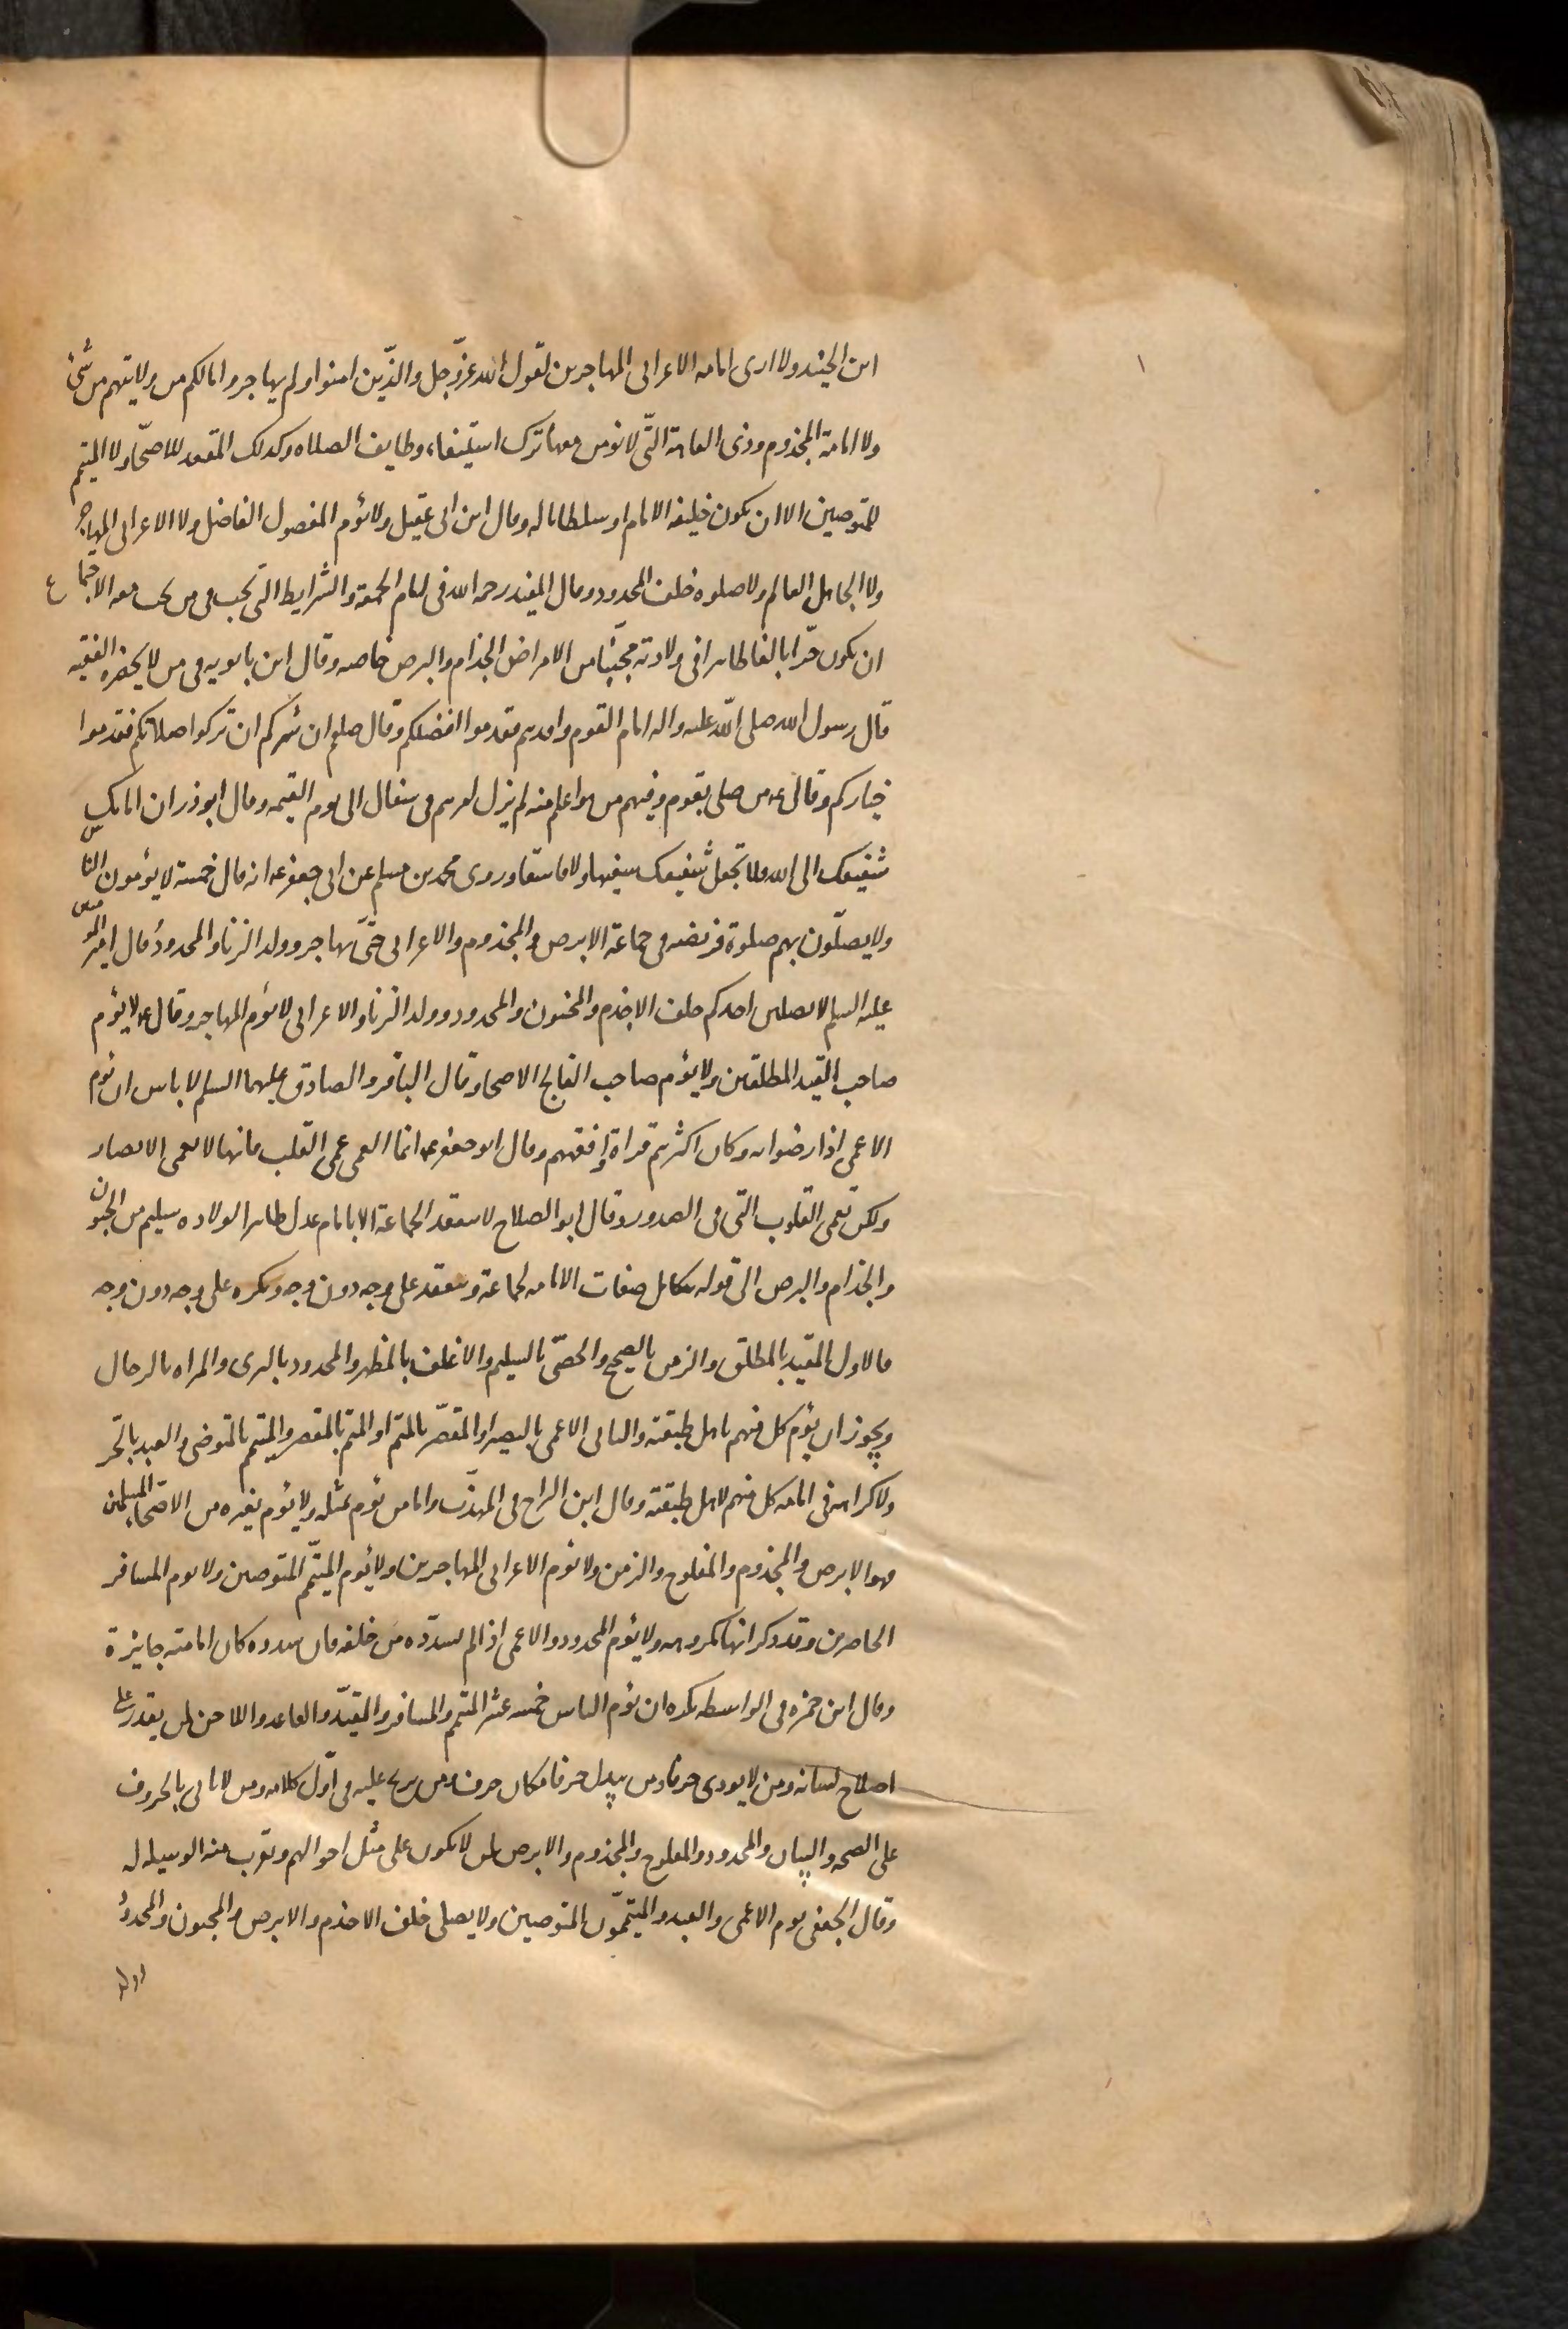 ابن الجنيد ولا ارى امامه الاعرابى المهاجرين لقول الله عزّوجل والذّين امنوا ولم يهاجروا مالكم من ولايتهم من شئ
ولا امامة المجذوم وذى العاهة التّى لا نومن معها ترك استيفاء وظايف الصلاه وكذلك المقعد للاصحّاء ولا المتيمم
للمتوضين الا ان يكون خليفه الامام او سلطانا له وقال ابن ابى عقيل ولا يؤم المفضول الفاضل ولا الاعرابى المهاجر
ولا الجاهل العالم ولا صلوه خلف المحدود وقال المفيد رحمه الله فى امام الجمعة والشرايط التى تجب فى من تجب معه الاجتماع
ان يكون حرّا بالغا طاهرا فى ولادته مجنّبا من الامراض الجذام والبرص خاصه وقال ابن بابويه فى من لا يحضره الفقيه
قال رسول الله صلى الله عليه واله امام القوم وافدهم فقدموا افضلكم وقال صلعم ان سركم ان تزكوا صلاتكم فقدموا
خياركم وقال ع من صلى بقوم وفيهم من هو اعلم منه لم يزل امرهم فى سفال الى يوم القيمه وقال ابوذر ان امامك
شفيعك الى الله فلا تجعل شفيعك سفيها ولا فاسقا وروى محمد بن مسلم عن ابى جعفر ع انه قال خمسة لا يؤمون الناس
ولا يصلّون بهم صلوة فريضه فى جماعة الابرص والمجذوم والاعرابى حتّى يهاجر وولد الزنا والمحدود وقال امير المؤمنين
عليه السلم لا يصلين احدكم خلف الاجذم والمجنون والمحدود وولد الزنا والاعرابى لا يؤم المهاجر وقال ع لا يؤم
صاحب القيد المطلقين ولا يؤم صاحب الفالج الاصحاء وقال الباقر والصادق عليهما السلم لا باس ان يؤم
الاعمى اذا رضوا به وكان اكثرهم قراة وافقههم وقال ابو جعفر ع انما العمى عمى القلب فانها لا تعمى الابصار
ولكن تعمى القلوب التى فى الصدور وقال ابو الصلاح لا ينعقد الجماعة الا بامام عدل طاهر الولاده سليم من الجنون
والجذام والبرص الى قوله يتكامل صفات الامامه لجماعة وينعقد على وجه دون وجه ويكره على وجه دون وجه
فالاول المقيد بالمطلق والزمن بالصحيح والخصّى بالسليم والاغلف بالمطهر والمحدود بالبرى والمراه بالرجال
ويجوز ان يؤم كل منهم باهل طبقته والثانى الاعمى بالبصير والمقصّر بالمتم او المتم بالمقصر والمتيمم بالمتوضى والعبد بالحر
ولا كراهه فى امامه كل منهم لاهل طبقته وقال ابن البراج فى المهذّب واما من يؤم بمثله ولا يؤم بغيره من الاصحّاء السليمين
فهو الابرص والمجذوم والمفلوج والزمن ولا يؤم الاعرابى المهاجرين ولا يؤم المتيمّم المتوضين ولا يوم المسافر
الحاضرين وقد ذكر انها مكروهه ولا يؤم المحدود والاعمى اذا لم يسدّده من خلفه فان سدده كان امامته جايزة
وقال ابن حمزه فى الواسطه يكره ان يؤم الناس خمسه عشر المتيمم والمسافر والمقيّد والقاعد واللاحن لمن يقدر على
اصلاح لسانه ومن لا يودى حرفا ومن يبدل حرفا مكان حرف ومن يرتج عليه فى اوّل كلامه ومن لا ياتى بالحروف
على الصحه والبيان والمحدود والمفلوج والمجذوم والابرص لمن لا يكون على مثل احوالهم وتقرب منه الوسيله له
وقال الجعفى يوم الاعمى والعبد والمتيممّون المتوضين ولا يصلى خلف الاجذم والابرص والمجنون والمحدود